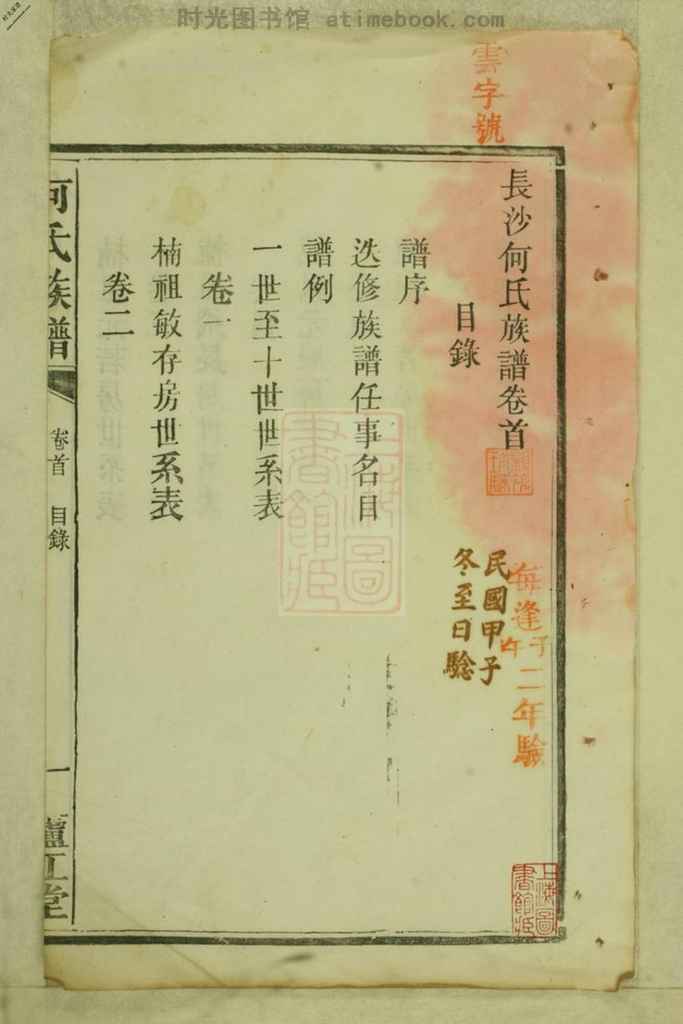 时光图书馆 atimebook.com
雲字號
長沙何氏族譜卷首
每逢子午二年驗
目錄
民國甲子
冬至日驗
譜序
迭修族譜任事名目
譜例
一世至十世世系表
卷一
楠祖敏存房世系表
卷二
何氏族譜 卷首 目錄 一 廬江堂
上海圖書館藏
上海圖書館藏